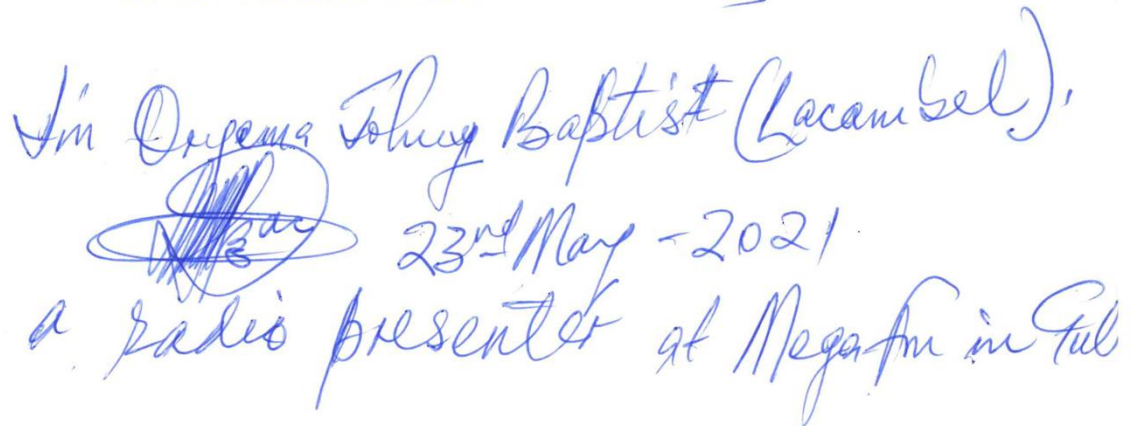 I'm Oryema Johnny Baptist (Lacambel).
23rd May - 2021
a radio presenter at Mega fm in Gul